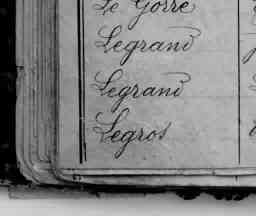 Le Gorre
Legrand
Legrand
Legros